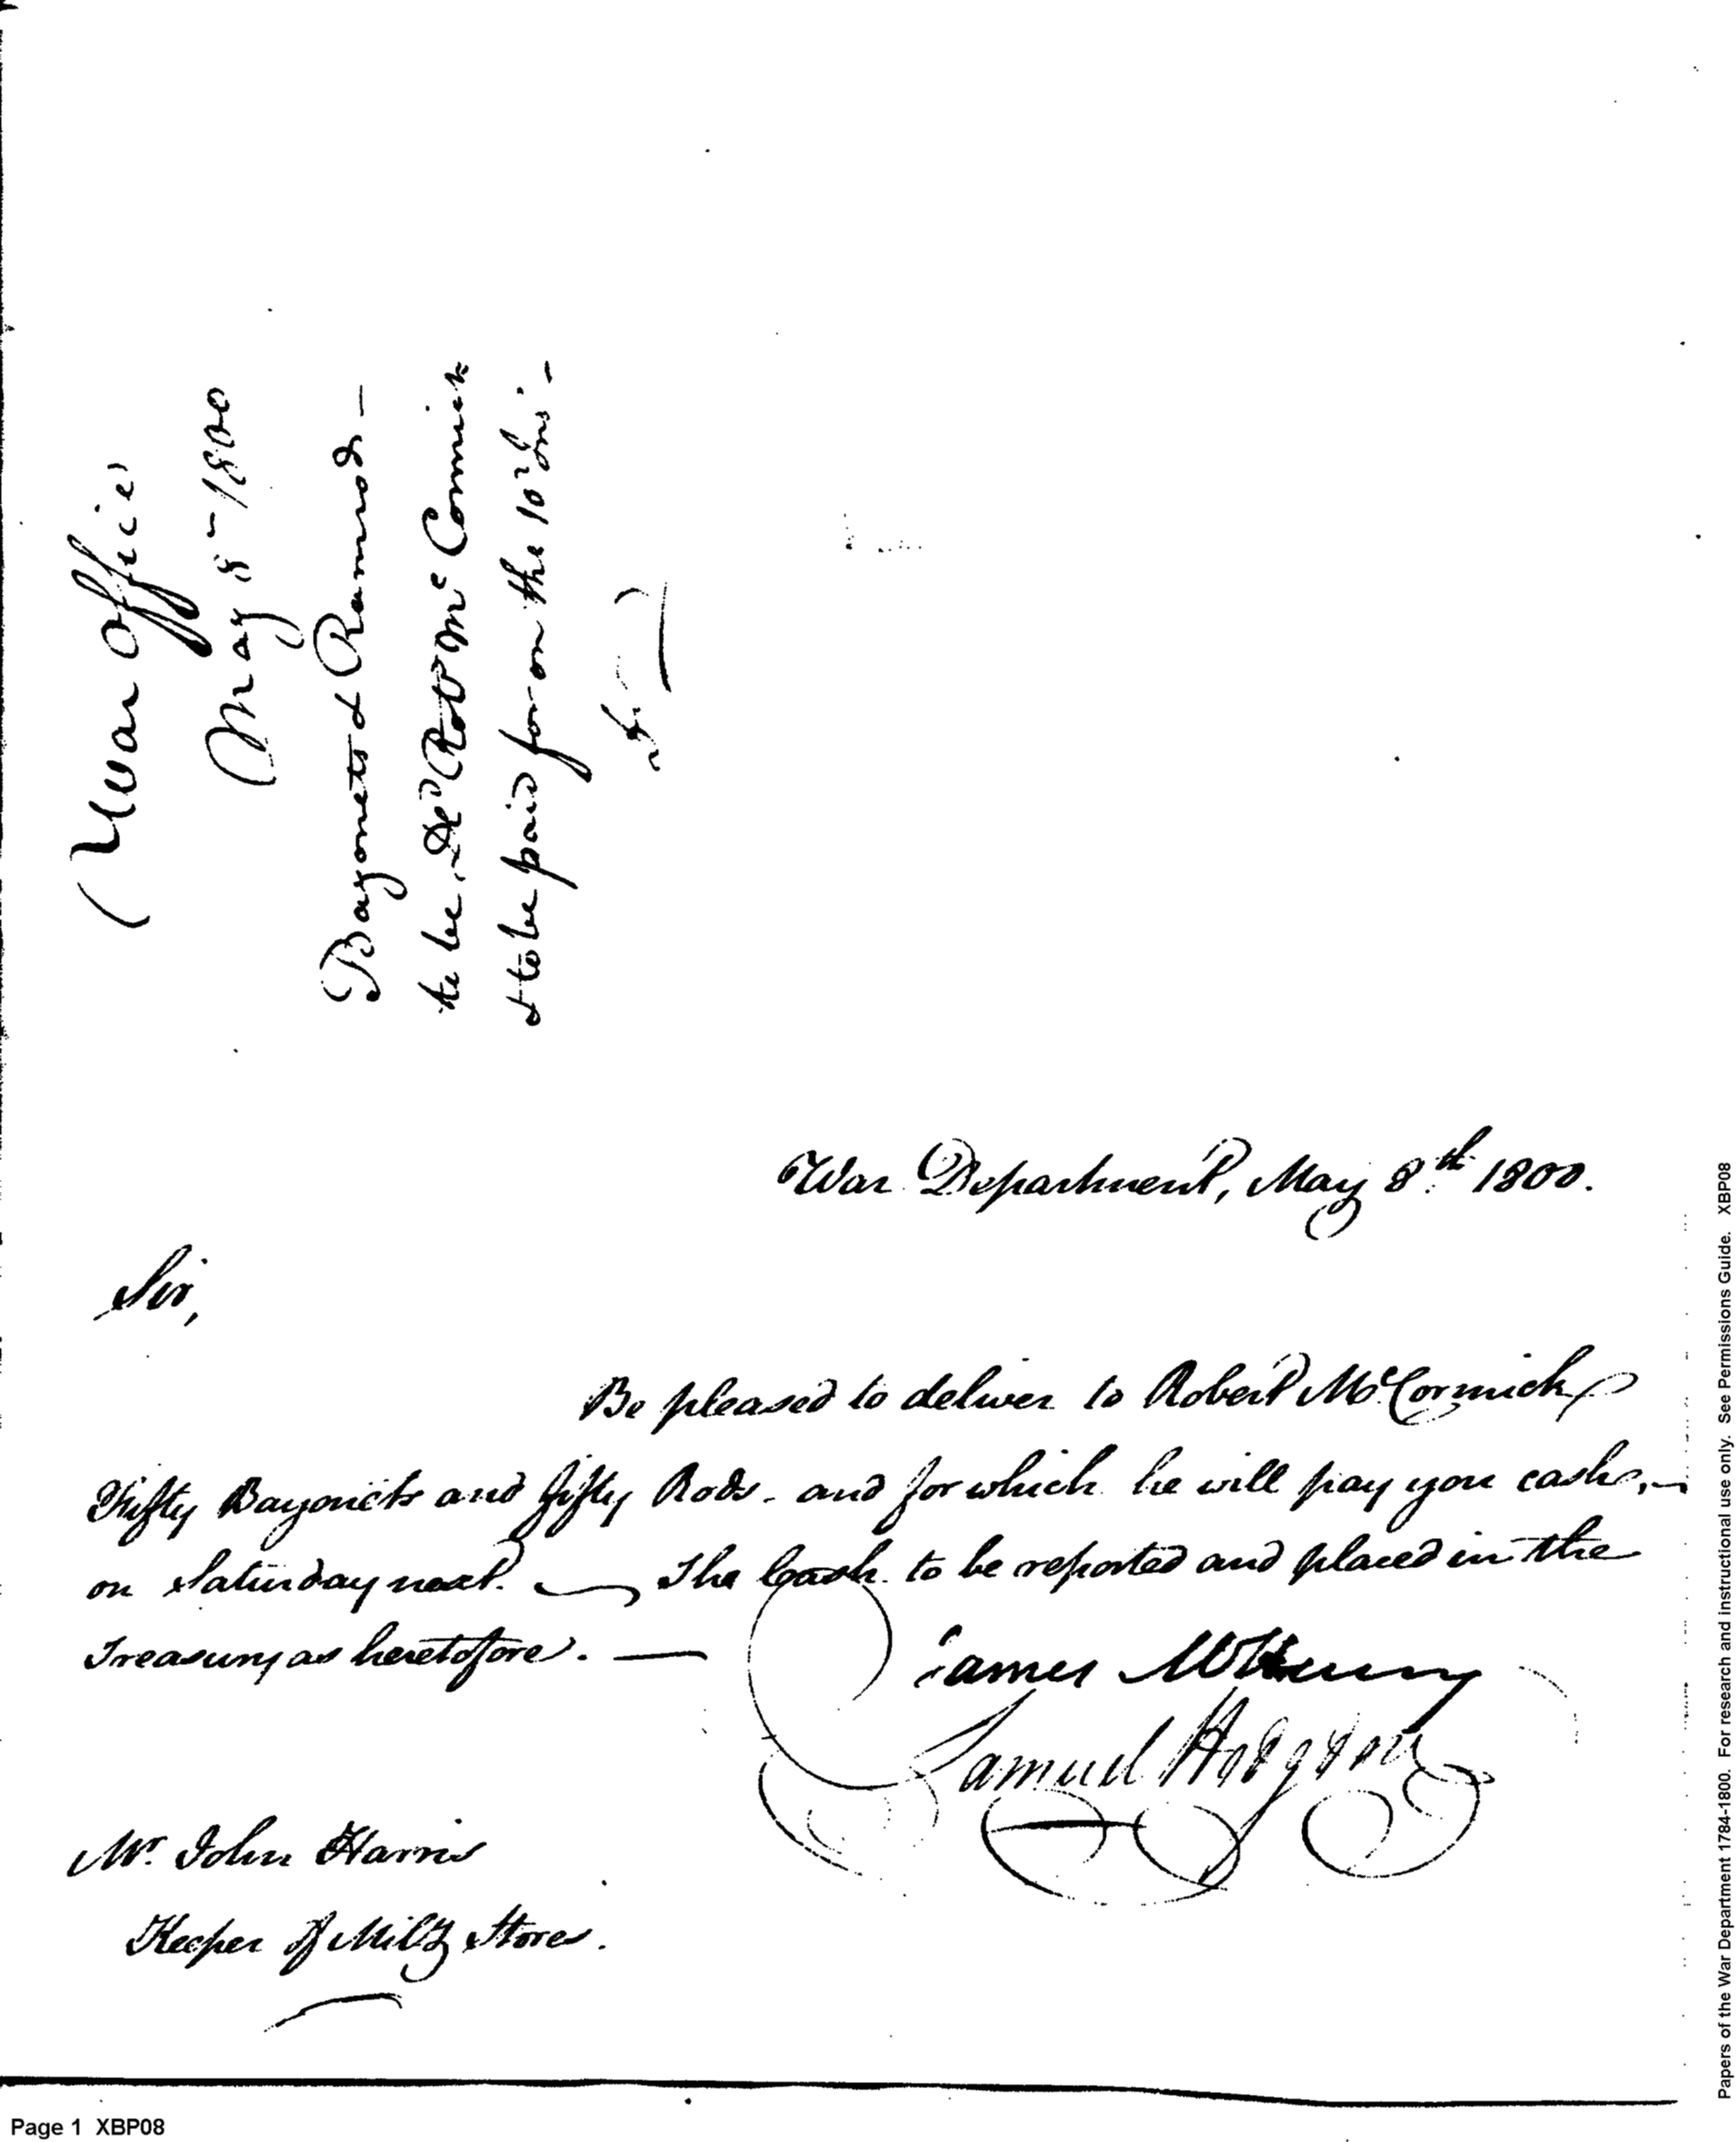 War Office
May 8 - 1800
Bayonets & Ramrods -
to be Dd Robt Mc Cormick
& to be paid for on the 10th Ins -
War Department, May 8th 1800.
Sir,
Be pleased to deliver to Robert McCormick
Fifty Bayonets and fifty Rods - and for which he will pay you cash, -
on Saturday next. The Cash to be reported and placed in the
Treasury as heretofore. —
James McHenry
Samuel Hodgdon
Mr. John Harris
Keeper of Mily Stores.
Page 1 XBP08
Papers of the War Department 1784-1800. For research and instructional use only. See Permissions Guide. XBP08